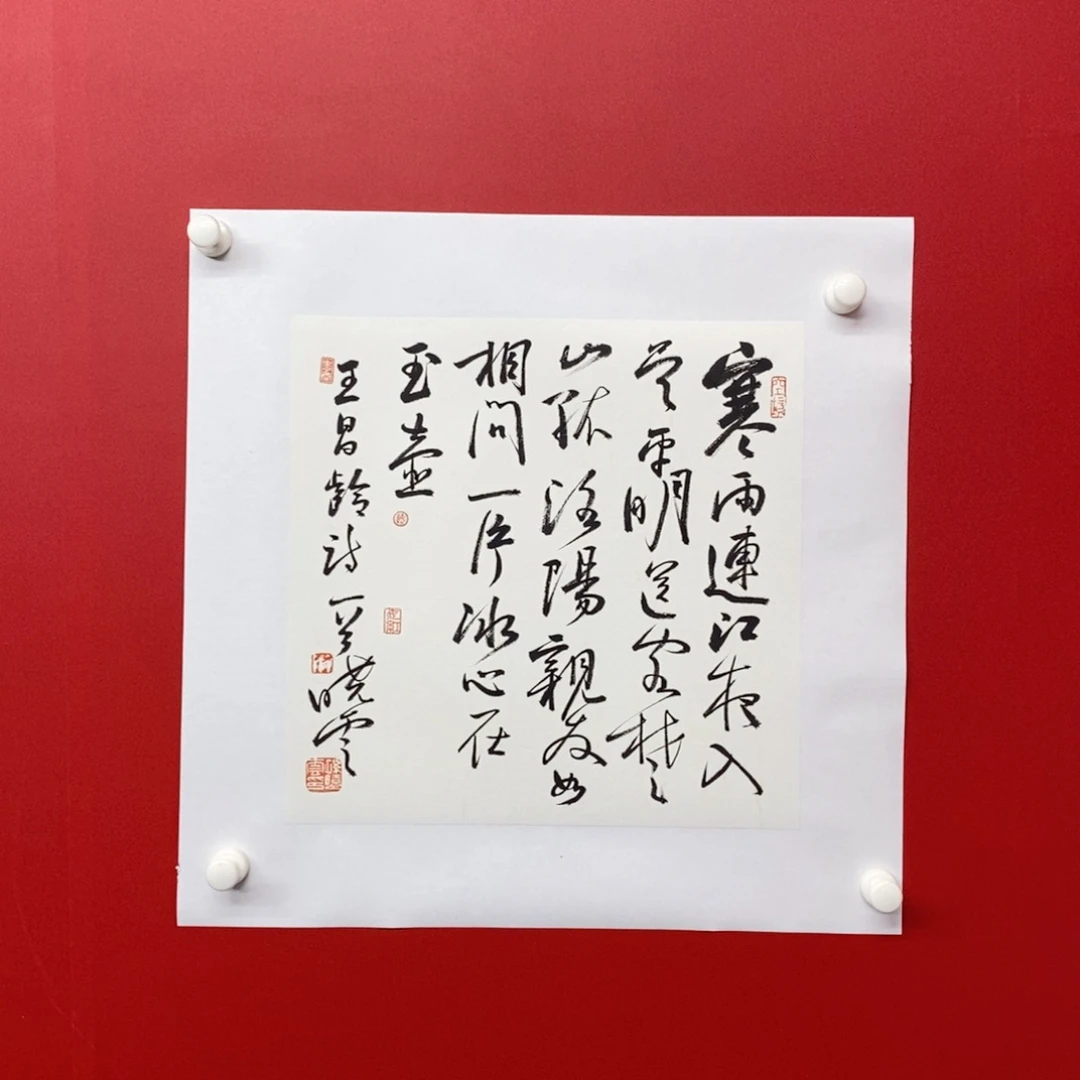 寒雨連江夜入
吳平明送客楚
山孤洛陽親友如
相問一片冰心在
玉壺
王昌齡詩一首曉雲